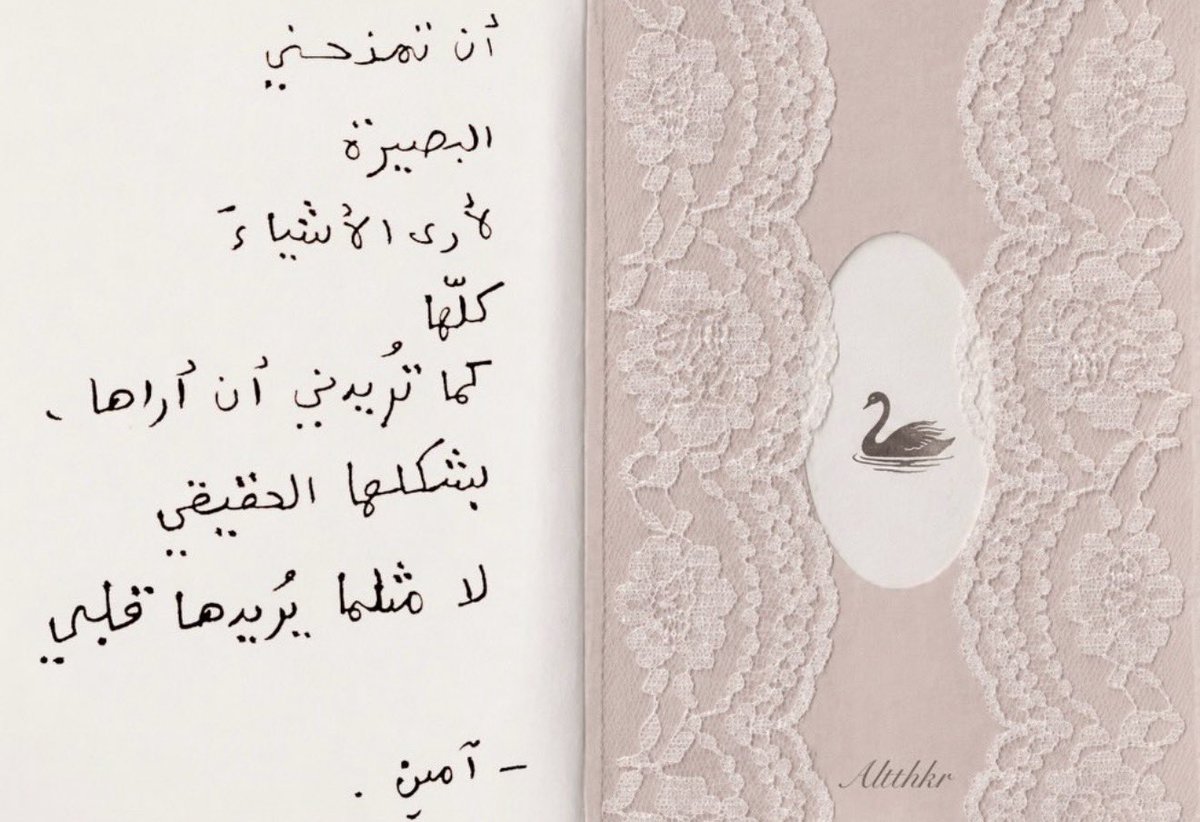 أن تمنحني
البصيرة
لأرى الأشياءَ
كلّها
كما تُريدني أن أراها ،
بشكلها الحقيقي
لا مثلما يُريدها قلبي
– آمين .
Altthkr